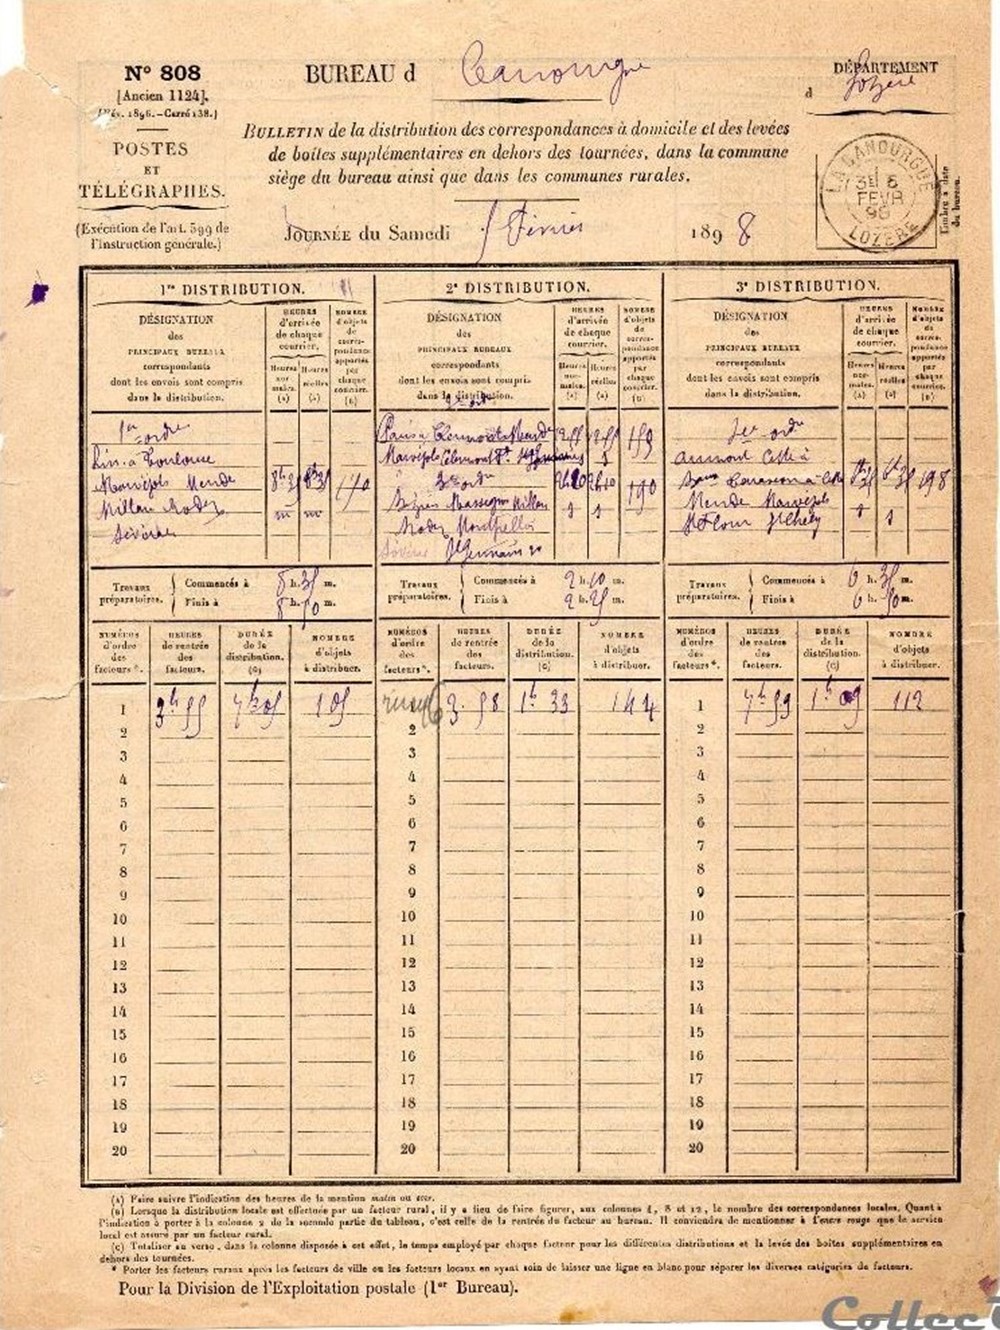 N° 808
[Ancien 1124].
(Dév. 1896.—Carré 138.)
POSTES
ET
TÉLÉGRAPHES.
(Exécution de l'art. 599 de
l'Instruction générale.)
BUREAU d Canourgue
DÉPARTEMENT
d Lozère
BULLETIN de la distribution des correspondances à domicile et des levées
de boîtes supplémentaires en dehors des tournées, dans la commune
siège du bureau ainsi que dans les communes rurales.
LA CANOURGUE
3E/ 6
FEVR
98
LOZERE
Timbre à date
du bureau.
JOURNÉE du Samedi 5 Février 1898
1re DISTRIBUTION.
DÉSIGNATION
des
PRINCIPAUX BUREAUX
correspondants
dont les envois sont compris
dans la distribution.
HEURES
d'arrivée
de chaque
courrier.
Heures
nor-
males.
(A)
Heures
réelles.
(A)
NOMBRE
d'objets
de
corres-
pondance
apportés
par
chaque
courrier.
(B)
1er ordre
Lin. à Toulouse
Marvejols Mende 8h35 8h35 170
Millau Rodez m m
Sévérac
2e DISTRIBUTION.
DÉSIGNATION
des
PRINCIPAUX BUREAUX
correspondants
dont les envois sont compris
dans la distribution.
HEURES
d'arrivée
de chaque
courrier.
Heures
nor-
males.
(A)
Heures
réelles.
(A)
NOMBRE
d'objets
de
corres-
pondance
apportés
par
chaque
courrier.
(B)
2e ordre
Paris à Clermont Mende 159
Marvejols Clermont Ft. St Germain s
3e ordre 2h10 2h10 190
Béziers Millau s s
Rodez Montpellier
Sévérac St Germain
3e DISTRIBUTION.
DÉSIGNATION
des
PRINCIPAUX BUREAUX
correspondants
dont les envois sont compris
dans la distribution.
HEURES
d'arrivée
de chaque
courrier.
Heures
nor-
males.
(A)
Heures
réelles
(A)
NOMBRE
d'objets
de
corres-
pondance
apportés
par
chaque
courrier.
(B)
1er ordre
Aumont Cette à
6h35 6h35 198
Mende Marvejols s s
St Flour St Chély
Travaux
préparatoires.
Commencés à 8 h. 35 m.
Finis à 8 h. 50 m.
Travaux
préparatoires.
Commencés à 2 h. 10 m.
Finis à 2 h. 25 m.
Travaux
préparatoires.
Commencés à 6 h. 35 m.
Finis à 6 h. 50 m.
NUMÉROS
d'ordre
des
facteurs*.
HEURES
de rentrée
des
facteurs.
DURÉE
de la
distribution.
(C)
NOMBRE
d'objets
à distribuer.
NUMÉROS
d'ordre
des
facteurs*.
HEURES
de rentrée
des
facteurs.
DURÉE
de la
distribution.
(C)
NOMBRE
d'objets
à distribuer.
NUMÉROS
d'ordre
des
facteurs*.
HEURES
de rentrée
des
facteurs.
DURÉE
de la
distribution.
(C)
NOMBRE
d'objets
à distribuer.
1 3h55 7h05 105 3.58 1h33 144 1 7h59 1h09 112
2 2 2
3 3 3
4 4 4
5 5 5
6 6 6
7 7 7
8 8 8
9 9 9
10 10 10
11 11 11
12 12 12
13 13 13
14 14 14
15 15 15
16 16 16
17 17 17
18 18 18
19 19 19
20 20 20
(A) Faire suivre l'indication des heures de la mention matin ou soir.
(B) Lorsque la distribution locale est effectuée par un facteur rural, il y a lieu de faire figurer, aux colonnes 4, 8 et 12, le nombre des correspondances locales. Quant à
l'indication à porter à la colonne 2 de la seconde partie du tableau, c'est celle de la rentrée du facteur au bureau. Il conviendra de mentionner à l'encre rouge que le service
local est assuré par un facteur rural.
(C) Totaliser au verso, dans la colonne disposée à cet effet, le temps employé par chaque facteur pour les différentes distributions et la levée des boîtes supplémentaires en
dehors des tournées.
* Porter les facteurs ruraux après les facteurs de ville ou les facteurs locaux en ayant soin de laisser une ligne en blanc pour séparer les diverses catégories de facteurs.
Pour la Division de l'Exploitation postale (1er Bureau).
Collec